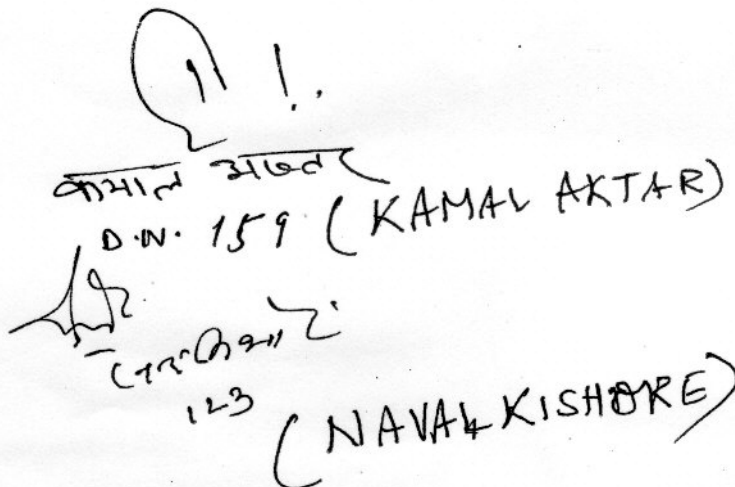 कमाल अख्तर
D.N. 159 (KAMAL AKTAR)
123
(NAVAL KISHORE)